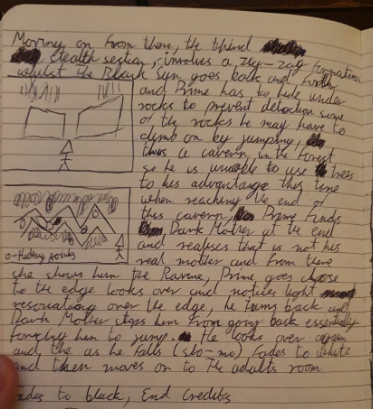 Moving on from there, the third
Stealth section, involves a zig-zag formation
whilst the Black Sun goes back and forth
and Prime has to hide under
rocks to prevent detection some
of the rocks he may have to
climb on by jumping,
this a cavern in the forest
so he is unable to use trees
to his advantage this time
when reaching the end of
this cavern, Prime finds
Dark Mother at the end
and realises that is not his
o-Hiding points
real mother and from there
she shows him the Ravine, Prime goes close
to the edge looks over and notices light
resonating over the edge, he turns back and
Dark Mother stops him from going back essentially
forcing him to jump. He looks over again
and the as he falls (slo-mo) fades to white
and then moves on to the adults room
Fades to black, End Credits